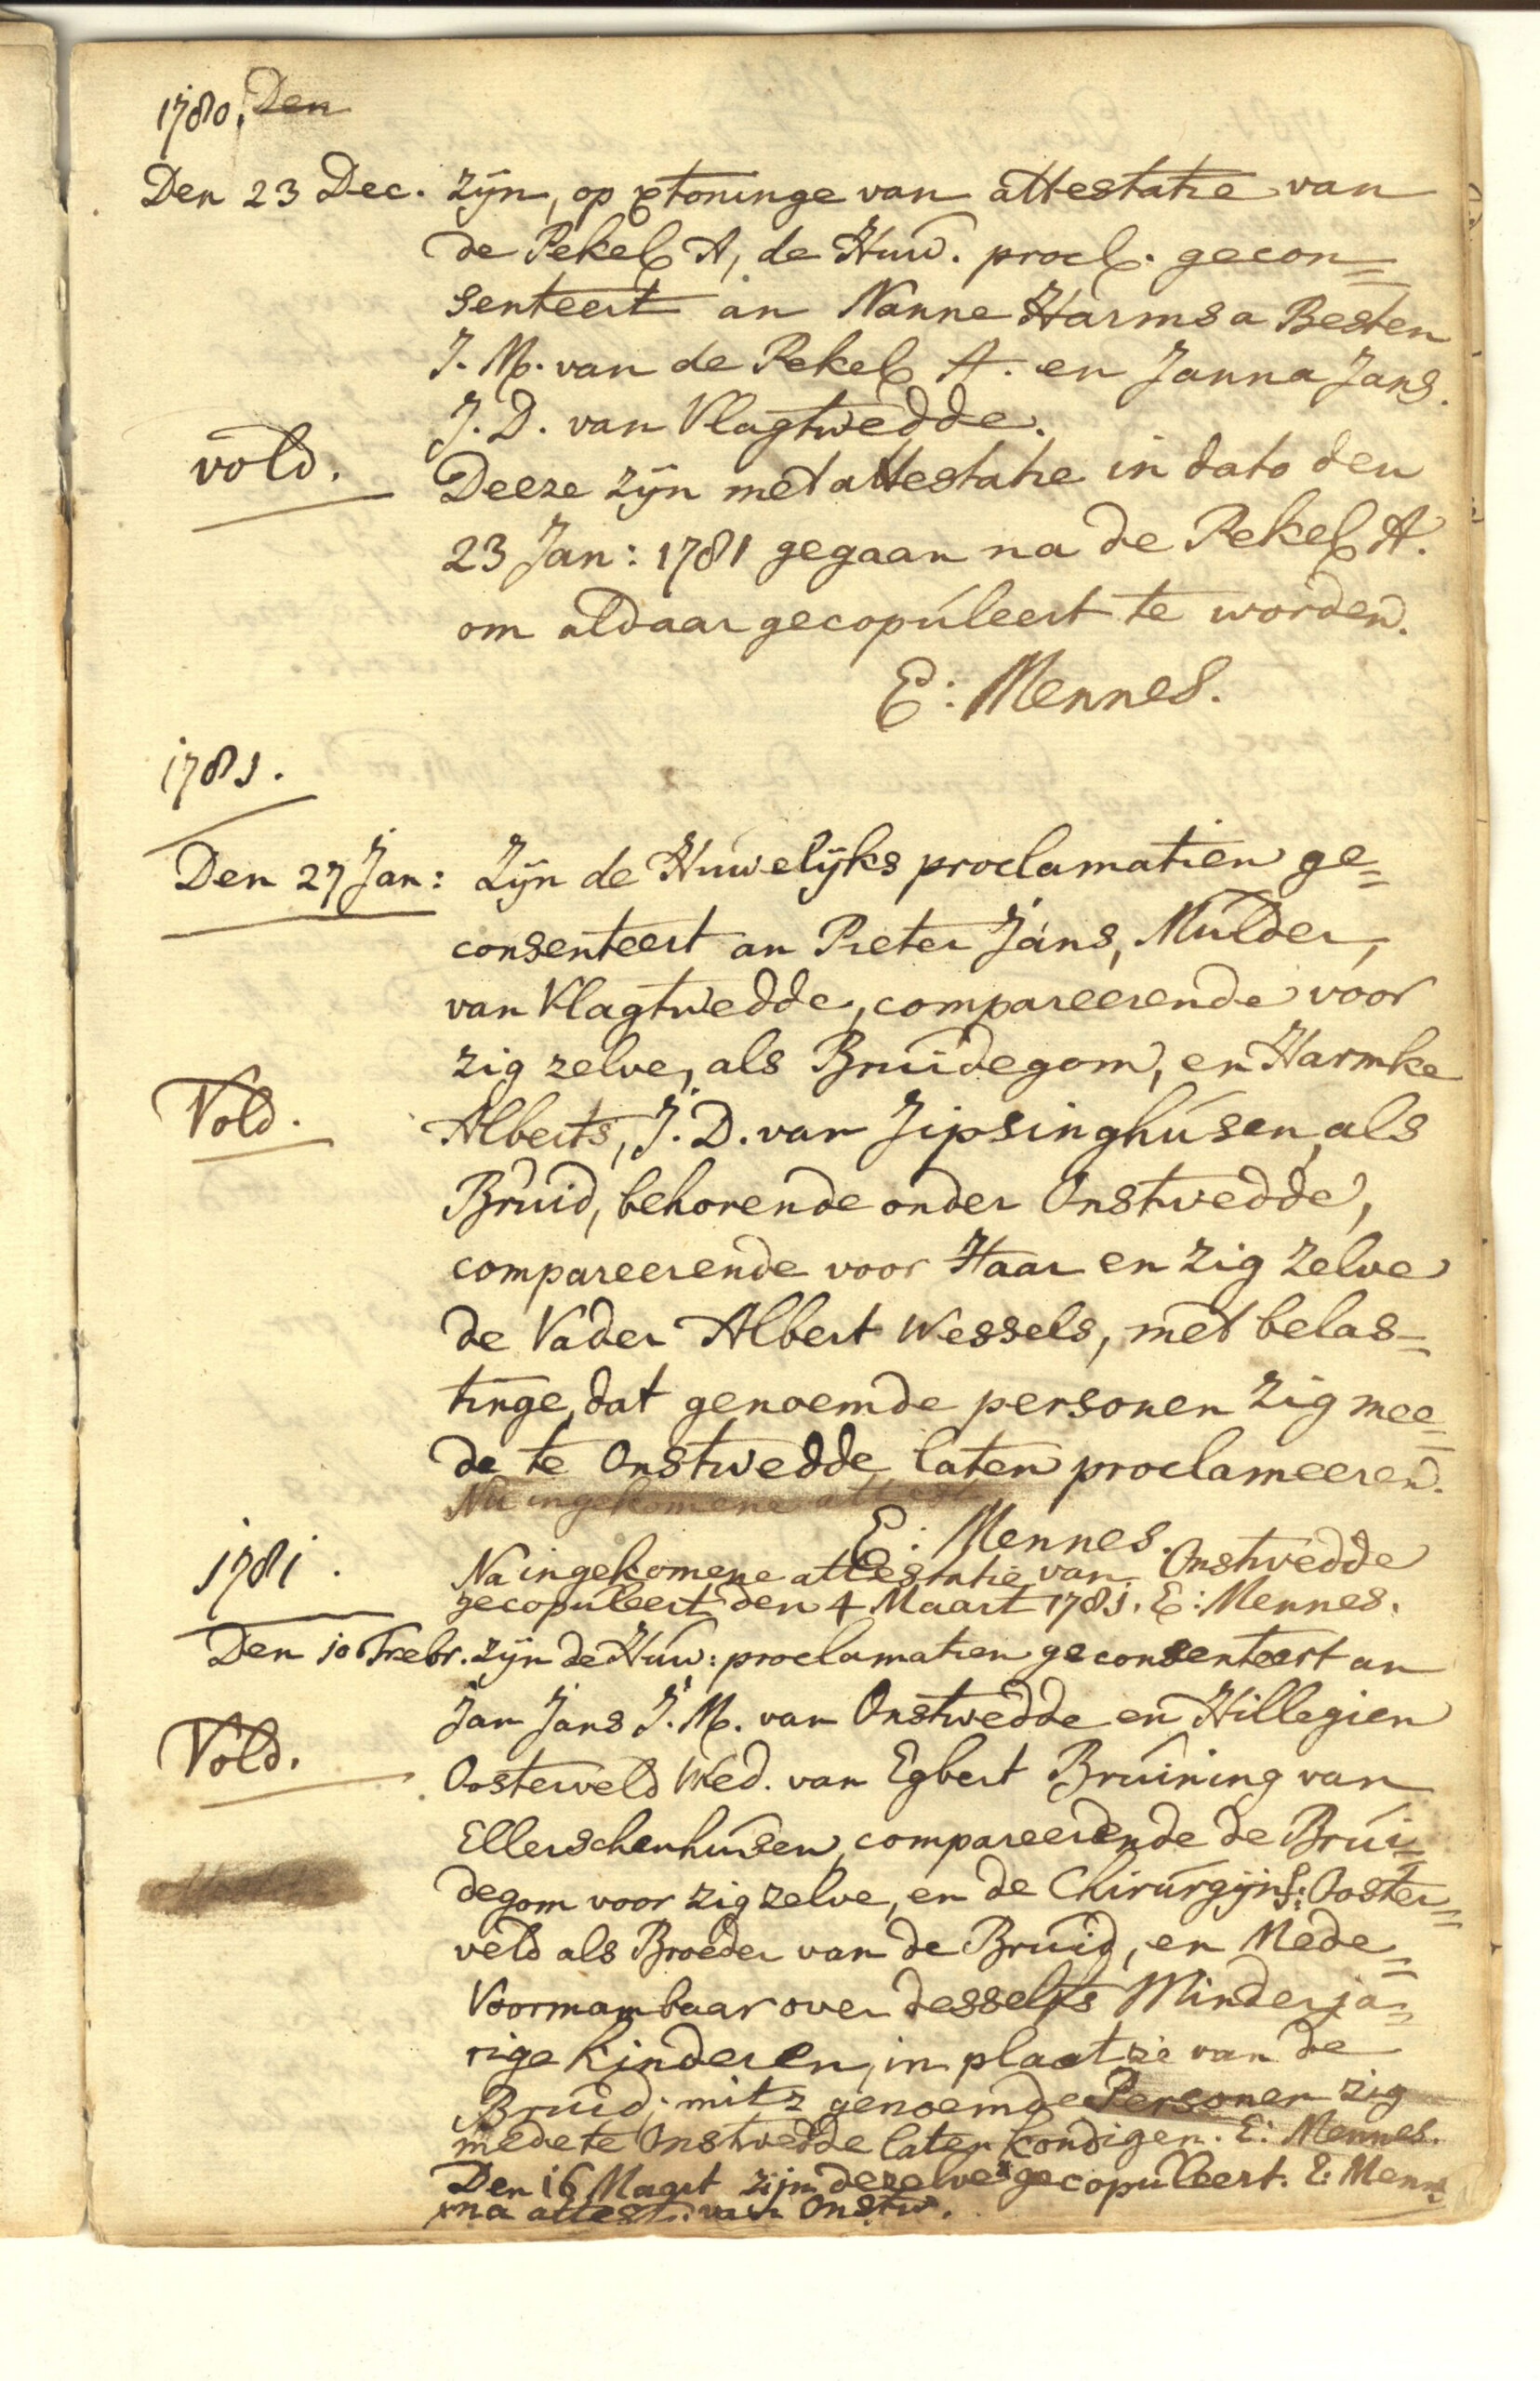 1780. Den
Den 23 Dec. zijn, op extoninge van attestatie van
de Pekel A, de Huw. procl. gecon=
senteert an Nanne Harms a Besten
J. M. van de Pekel A. en Janna Jans.
J. D. van Vlagtwedde.
vold. Deeze zijn met attestatie in dato den
23 Jan: 1781 gegaan na de Pekel A.
om aldaar gecopuleert te worden.
E: Mennes.
1781.
Den 27 Jan: Zijn de Huwelijks proclamatien ge=
consenteert an Pieter Jans, Mulder,
van Vlagtwedde, compareerende voor
zig zelve, als Bruidegom, en Harmke
Vold. Alberts, J. D. van Jipsinghusen, als
Bruid, behorende onder Onstwedde,
compareerende voor Haar en zig zelve
de Vader Albert Wessels, met belas=
tinge, dat genoemde personen zig mee=
de te Onstwedde laten proclameeren.
Na ingekomene attest
E: Mennes.
1781. Na ingekomene attestatie van Onstwedde
gecopuleert den 4 Maart 1781. E: Mennes.
Den 10 Febr. zijn de Huw: proclamatien geconsenteert an
Jan Jans J. M. van Onstwedde en Hillegien
Vold. Oosterveld Wed. van Egbert Bruining van
Ellerschenhusen, compareerende de Brui=
degom voor zig zelve, en de Chirurgijn S: Ooster=
veld als Broeder van de Bruid, en Mede=
Voormambaar over desselfs Minderja=
rige Kinderen, in plaatze van de
Bruid; mits genoemde Personen zig
mede te Onstwedde laten kondigen. E: Mennes.
Den 16 Maart zijn dezelve x gecopuleert. E: Menns
x na attest. van Onstw.